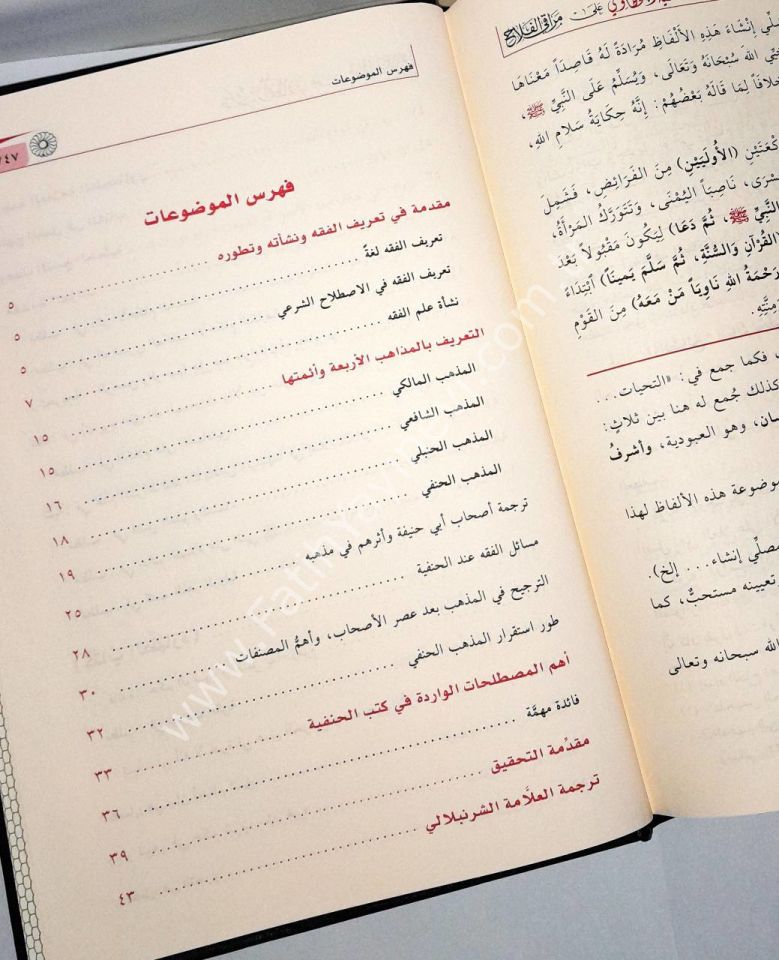 على مراقي الفلاح
إنشاءَ هَذِهِ الأَلْفَاظِ مُرَادَةً لَهُ قَاصِداً مَعْنَاهَا
اللهَ سُبْحَانَهُ وَتَعَالَى، وَيُسَلِّمُ عَلَى النَّبِيِّ ﷺ،
لِمَا قَالَهُ بَعْضُهُمْ: إِنَّهُ حِكَايَةُ سَلَامِ اللهِ،
(الأُولَيَيْنِ) مِنَ الفَرَائِضِ، فَشَمِلَ
نَاصِباً اليُمْنَى، وَتَتَوَرَّكُ المَرْأَةُ،
النَّبِيِّ ﷺ، ثُمَّ دَعَا) لِيَكُونَ مَقْبُولاً بَعْدَ
القُرْآنِ وَالسُّنَّةِ، ثُمَّ سَلَّمَ يَمِيناً) ابْتِدَاءً
رَحْمَةُ اللهِ نَاوِياً مَنْ مَعَهُ) مِنَ القَوْمِ
فكما جمع في: «التحيات...
كذلك جُمع له هنا بين ثلاثٍ:
وهو العبودية، وأشرفُ
موضوعة هذه الألفاظ لهذا
إنشاء... إلخ).
تعيينه مستحبٌّ، كما
الله سبحانه وتعالى
فهرس الموضوعات
٤٧
فهرس الموضوعات
مقدمة في تعريف الفقه ونشأته وتطوره ........ ٥
تعريف الفقه لغةً ........ ٥
تعريف الفقه في الاصطلاح الشرعي ........ ٥
نشأة علم الفقه ........ ٧
التعريف بالمذاهب الأربعة وأئمتها ........ ١٥
المذهب المالكي ........ ١٥
المذهب الشافعي ........ ١٦
المذهب الحنبلي ........ ١٨
المذهب الحنفي ........ ١٩
ترجمة أصحاب أبي حنيفة وأثرهم في مذهبه ........ ٢٥
مسائل الفقه عند الحنفية ........ ٢٨
الترجيح في المذهب بعد عصر الأصحاب، وأهمُّ المصنفات ........ ٣٠
طور استقرار المذهب الحنفي ........ ٣٢
أهم المصطلحات الواردة في كتب الحنفية ........ ٣٣
فائدة مهمَّة ........ ٣٦
مقدِّمة التحقيق ........ ٣٩
ترجمة العلَّامة الشرنبلالي ........ ٤٣